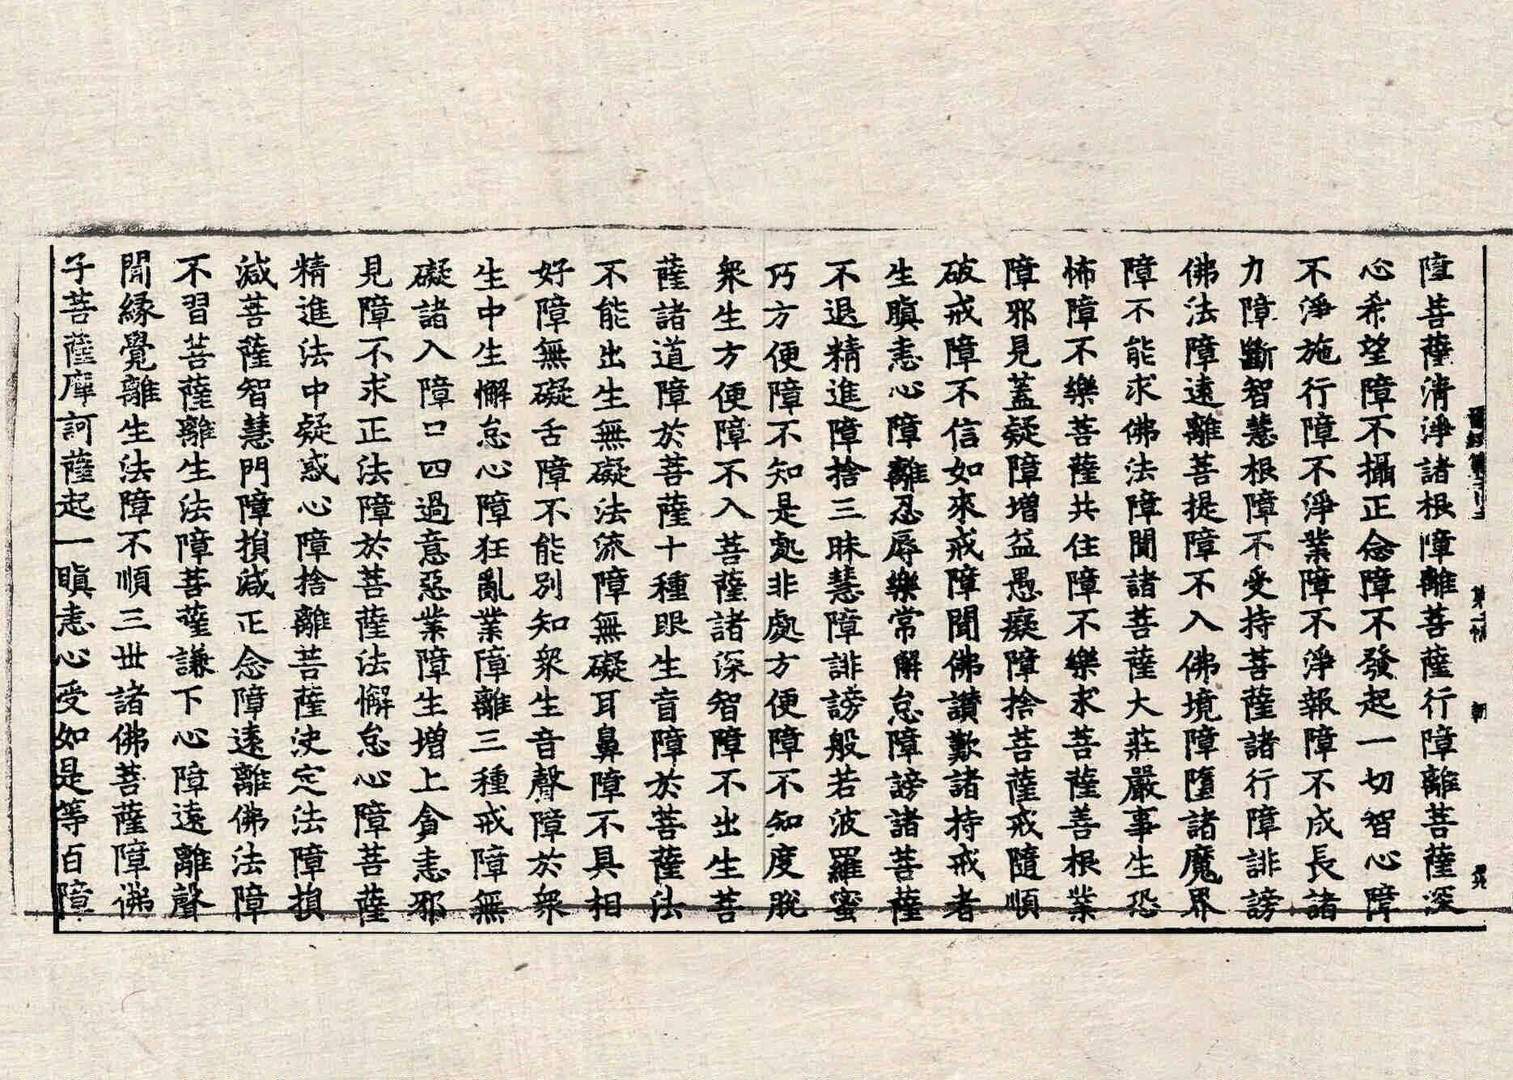 障菩薩清淨諸根障離菩薩行障離菩薩深
心希望障不攝正念障不發起一切智心障
不淨施行障不淨業障不淨報障不成長諸
力障斷智慧根障不受持菩薩諸行障誹謗
佛法障遠離菩提障不入佛境障墮諸魔界
障不能求佛法障聞諸菩薩大莊嚴事生恐
怖障不樂菩薩共住障不樂求菩薩善根業
障邪見蓋疑障增益愚癡障捨菩薩戒隨順
破戒障不信如來戒障聞佛讃歎諸持戒者
生瞋恚心障離忍辱樂常懈怠障謗諸菩薩
不退精進障捨三昧慧障誹謗般若波羅蜜
巧方便障不知是處非處方便障不知度脫
衆生方便障不入菩薩諸深智障不出生菩
薩諸道障於菩薩十種眼生盲障於菩薩法
不能出生無礙法流障無礙耳鼻障不具相
好障無礙舌障不能別知衆生音聲障於衆
生中生懈怠心障狂亂業障離三種戒障無
礙諸入障口四過意惡業障生增上貪恚邪
見障不求正法障於菩薩法懈怠心障菩薩
精進法中疑惑心障捨離菩薩決定法障損
減菩薩智慧門障損減正念障遠離佛法障
不習菩薩離生法障菩薩謙下心障遠離聲
聞緣覺離生法障不順三世諸佛菩薩障佛
子菩薩摩訶薩起一瞋恚心受如是等百障